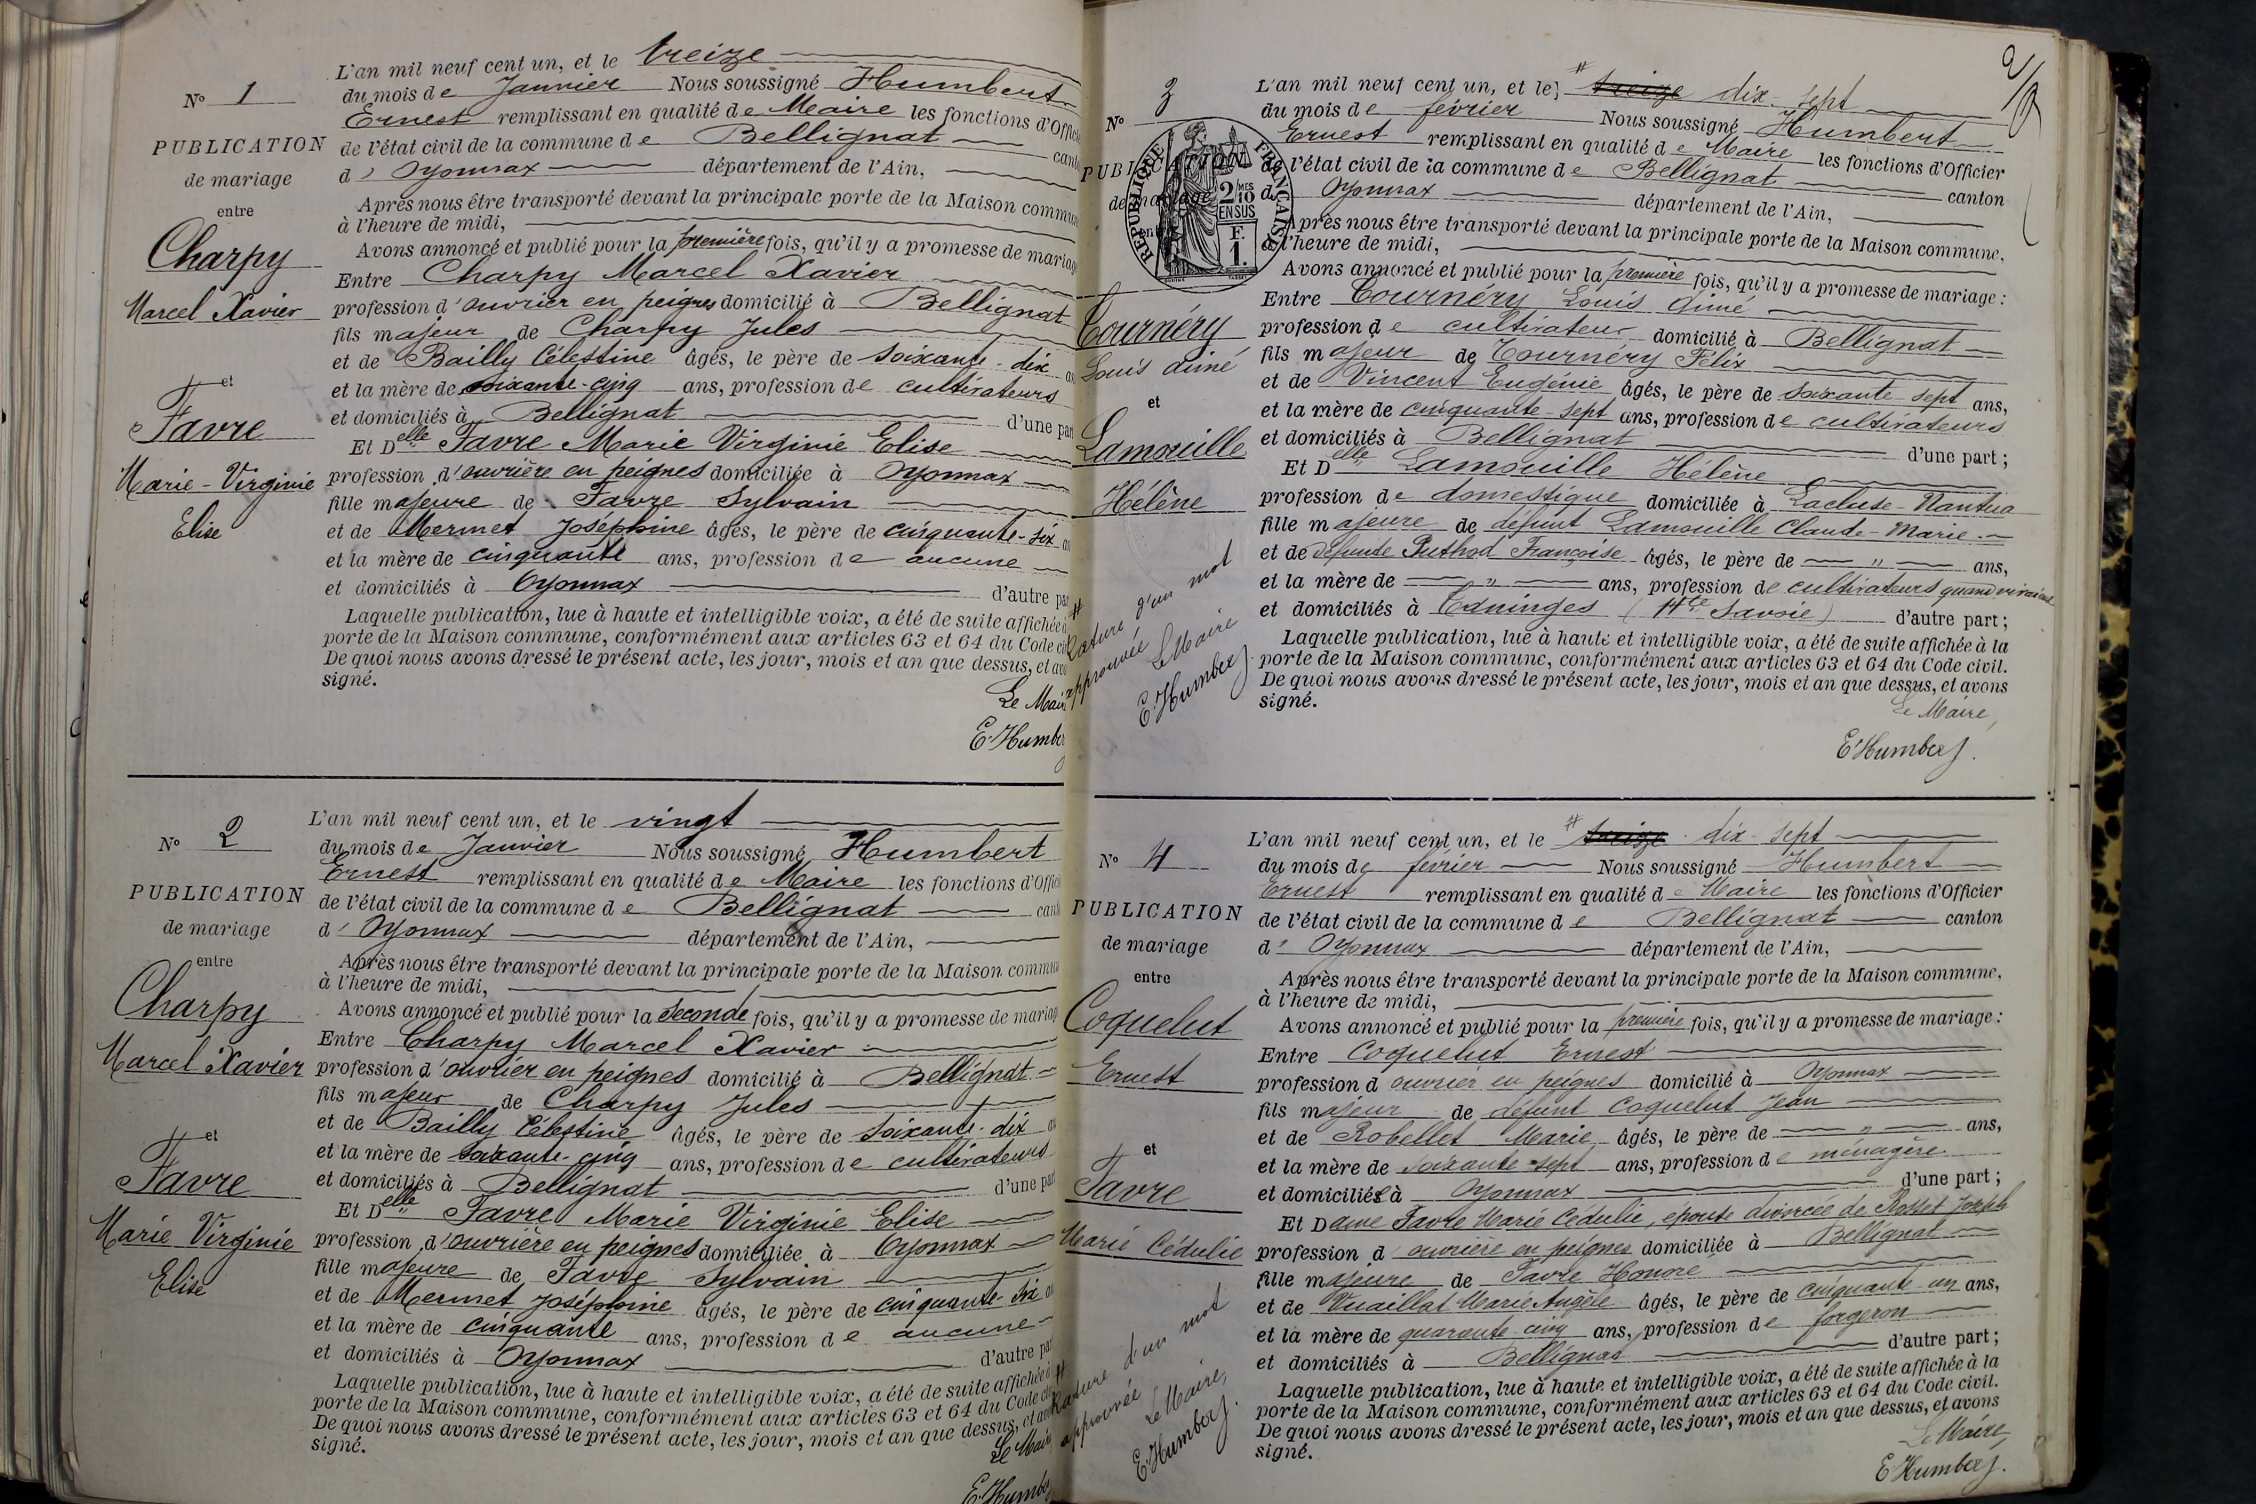 N° 1
PUBLICATION
de mariage
entre
Charpy
Marcel Xavier
et
Favre
Marie-Virginie
Elise
L'an mil neuf cent un, et le treize
du mois de Janvier Nous soussigné Humbert
Ernest remplissant en qualité de Maire les fonctions d'Offici
de l'état civil de la commune de Bellignat cant
d'Oyonnax département de l'Ain,
Après nous être transporté devant la principale porte de la Maison commun
à l'heure de midi,
Avons annoncé et publié pour la première fois, qu'il y a promesse de mariage
Entre Charpy Marcel Xavier
profession d'ouvrier en peignes domicilié à Bellignat
fils majeur de Charpy Jules
et de Bailly Célestine âgés, le père de soixante-dix an
et la mère de soixante-cinq ans, profession de cultivateurs
et domiciliés à Bellignat d'une part
Et Delle Favre Marie Virginie Elise
profession d'ouvrière en peignes domiciliée à Oyonnax
fille majeure de Favre Sylvain
et de Mermet Joséphine âgés, le père de cinquante-six an
et la mère de cinquante ans, profession de aucune
et domiciliés à Oyonnax d'autre par
Laquelle publication, lue à haute et intelligible voix, a été de suite affichée à
porte de la Maison commune, conformément aux articles 63 et 64 du Code civ
De quoi nous avons dressé le présent acte, les jour, mois et an que dessus, et avo
signé.
Le Maire
E. Humber
N° 2
PUBLICATION
de mariage
entre
Charpy
Marcel Xavier
et
Favre
Marie Virginie
Elise
L'an mil neuf cent un, et le vingt
du mois de Janvier Nous soussigné Humbert
Ernest remplissant en qualité de Maire les fonctions d'Offici
de l'état civil de la commune de Bellignat cant
d'Oyonnax département de l'Ain,
Après nous être transporté devant la principale porte de la Maison commun
à l'heure de midi,
Avons annoncé et publié pour la seconde fois, qu'il y a promesse de mariag
Entre Charpy Marcel Xavier
profession d'ouvrier en peignes domicilié à Bellignat
fils majeur de Charpy Jules
et de Bailly Célestine âgés, le père de soixante-dix an
et la mère de soixante-cinq ans, profession de cultivateurs
et domiciliés à Bellignat d'une part
Et Delle Favre Marie Virginie Elise
profession d'ouvrière en peignes domiciliée à Oyonnax
fille majeure de Favre Sylvain
et de Mermet Joséphine âgés, le père de cinquante-six an
et la mère de cinquante ans, profession de aucune
et domiciliés à Oyonnax d'autre par
Laquelle publication, lue à haute et intelligible voix, a été de suite affichée à
porte de la Maison commune, conformément aux articles 63 et 64 du Code civ
De quoi nous avons dressé le présent acte, les jour, mois et an que dessus, et avo
signé.
Le Maire
E. Humber
2/
N° 3
PUBLICATION
de mariage
en
RÉPUBLIQUE FRANÇAISE
2/10 MES
EN SUS
F.
1.
Tournéry
Louis Aimé
et
Lamouille
Hélène
# Rature d'un mot
approuvée
Le Maire
E. Humbert
L'an mil neuf cent un, et le # treize dix-sept
du mois de février Nous soussigné Humbert
Ernest remplissant en qualité de Maire les fonctions d'Officier
l'état civil de la commune de Bellignat canton
d'Oyonnax département de l'Ain,
Après nous être transporté devant la principale porte de la Maison commune,
l'heure de midi,
Avons annoncé et publié pour la première fois, qu'il y a promesse de mariage :
Entre Tournéry Louis Aimé
profession de cultivateur domicilié à Bellignat
fils majeur de Tournéry Félix
et de Vincent Eugénie âgés, le père de soixante-sept ans,
et la mère de cinquante-sept ans, profession de cultivateurs
et domiciliés à Bellignat d'une part ;
Et Delle Lamouille Hélène
profession de domestique domiciliée à Lacluse-Nantua
fille majeure de défunt Lamouille Claude-Marie
et de défunte Puthod Françoise âgés, le père de " ans,
et la mère de " ans, profession de cultivateurs quand vivaient
et domiciliés à (Hte Savoie) d'autre part ;
Laquelle publication, lue à haute et intelligible voix, a été de suite affichée à la
porte de la Maison commune, conformément aux articles 63 et 64 du Code civil.
De quoi nous avons dressé le présent acte, les jour, mois et an que dessus, et avons
signé.
Le Maire,
E. Humbert
N° 4
PUBLICATION
de mariage
entre
Coquelut
Ernest
et
Favre
Marie Cédulie
# Rature d'un mot
approuvée
Le Maire,
E. Humbert
L'an mil neuf cent un, et le # treize dix-sept
du mois de février Nous soussigné Humbert
Ernest remplissant en qualité de Maire les fonctions d'Officier
de l'état civil de la commune de Bellignat canton
d'Oyonnax département de l'Ain,
Après nous être transporté devant la principale porte de la Maison commune,
à l'heure de midi,
Avons annoncé et publié pour la première fois, qu'il y a promesse de mariage :
Entre Coquelut Ernest
profession d ouvrier en peignes domicilié à Oyonnax
fils majeur de défunt Coquelut Jean
et de Robellet Marie âgés, le père de " ans,
et la mère de soixante-sept ans, profession de ménagère
et domiciliée à Oyonnax d'une part ;
Et Dame Favre Marie Cédulie, épouse divorcée de Rosset Joseph
profession d'ouvrière en peignes domiciliée à Bellignat
fille majeure de Favre Honoré
et de Vuaillat Marie Angèle âgés, le père de cinquante-un ans,
et la mère de quarante cinq ans, profession de forgeron
et domiciliés à Bellignat d'autre part ;
Laquelle publication, lue à haute et intelligible voix, a été de suite affichée à la
porte de la Maison commune, conformément aux articles 63 et 64 du Code civil.
De quoi nous avons dressé le présent acte, les jour, mois et an que dessus, et avons
signé.
Le Maire,
E. Humbert